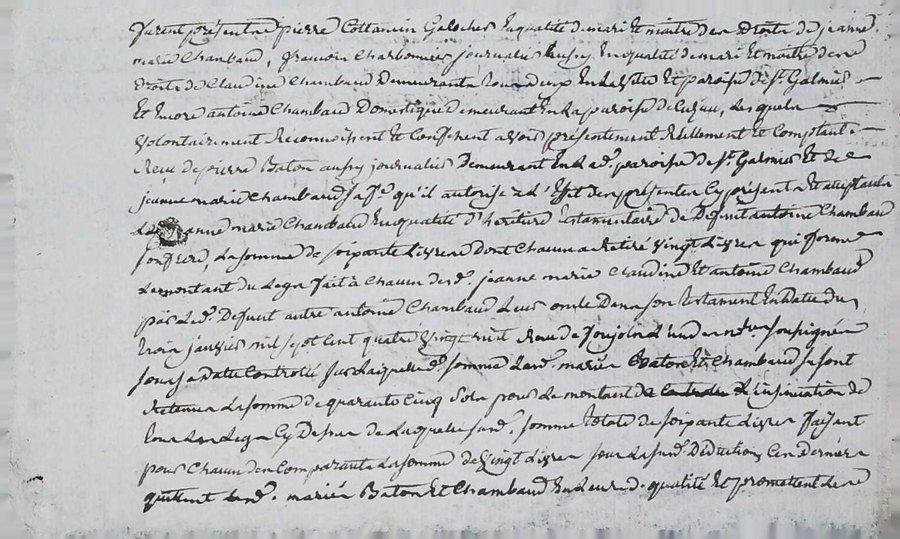 furent présents pierre Cottancin Galocher En qualité de mari Et maitre des Droits de jeanne
marie Chambaud, francois Charbonnier journalier Aussy En qualité de mari Et maitre des
Droits de Claudine Chambaud Demeurants tous deux En la ville Et paroisse de St. Galmier
Et Encore antoine Chambaud Domestique demeurant En la paroisse de Cuzieu, Lesquels
Volontairement Reconnoissent Et Confessent avoir présentement Réellement Et Comptant
Reçu de pierre Baton aussy journalier Demeurant En lad. paroisse de St. Galmier Et de
jeanne marie Chambaud sa fe. qu'il autorise a L'Effet des présentes Cy présents Et acceptants
Lad. jeanne marie Chambaud En qualité d'héritiere testamentaire de Deffunt antoine Chambaud
son frere, La somme de soixante Livres dont Chacun a Retiré vingt Livres qui forme
Le montant du Legs fait à Chacun desd. jeanne marie Claudine Et antoine Chambaud
par Led. Defunt autre antoine Chambaud Leur oncle Dans son testament En Datte du
trois janvier mil sept cent quatre vingt huit Reçu de Goujon L'un des nres. soussignés
sous sa Datte Controllé sur Laquelle d. somme Lesd. mariés Baton Et Chambaud se sont
Retenus La somme de quarante Cinq Sols pour Le montant de L'insinuation de
tous Les Legs Cy Dessus de Laquelle susd. somme totale de soixante Livres faisant
pour Chacun des Comparants La somme de vingt Livres sous La susd. Déduction, Ces derniers
quittent Lesd. mariés Baton Et Chambaud En Leurd. qualité Et promettent de ne